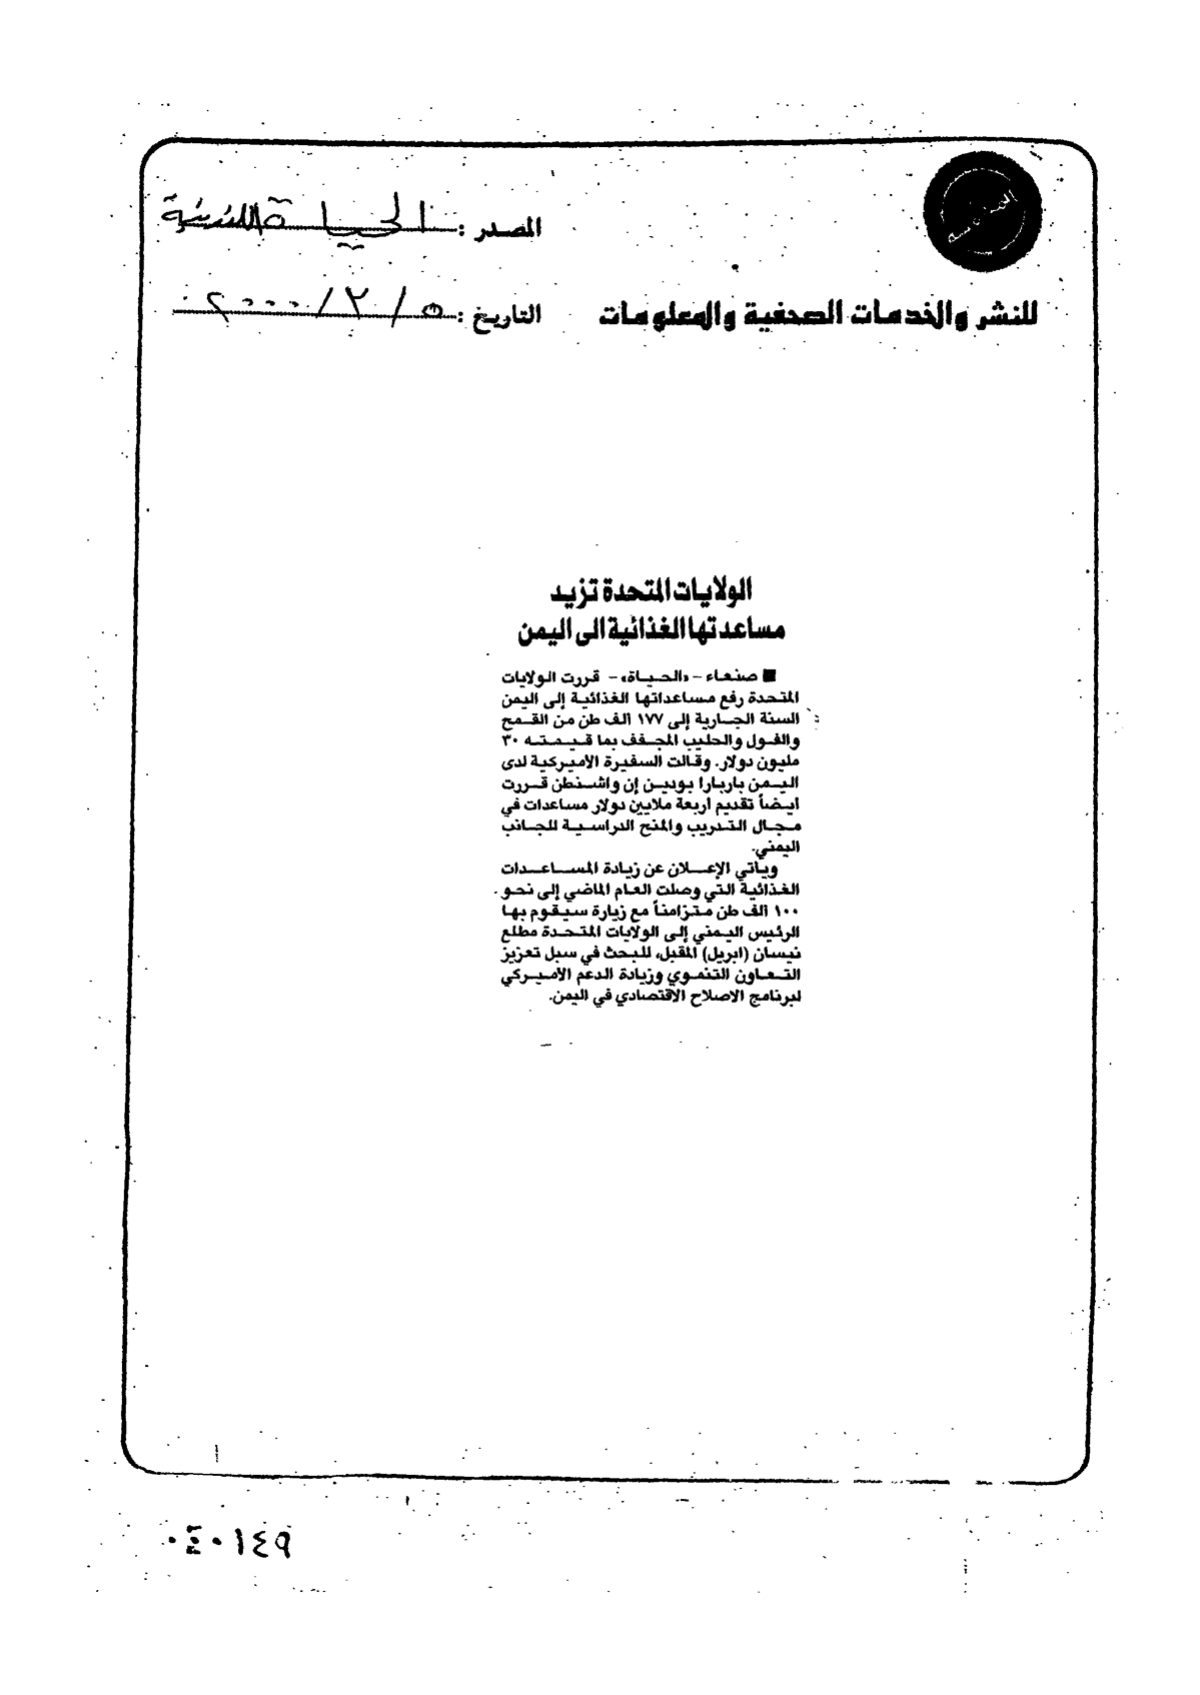 المصدر : الحياة اللندنية
للنشر والخدمات الصحفية والمعلومات
التاريخ : ٥ / ٢ / ٢٠٠٠
الولايات المتحدة تزيد
مساعدتها الغذائية الى اليمن
■ صنعاء - «الحياة» - قررت الولايات
المتحدة رفع مساعداتها الغذائية إلى اليمن
السنة الجارية إلى ١٧٧ الف طن من القمح
والفول والحليب المجفف بما قيمته ٣٠
مليون دولار. وقالت السفيرة الأميركية لدى
اليمن باربارا بودين إن واشنطن قررت
ايضاً تقديم اربعة ملايين دولار مساعدات في
مجال التدريب والمنح الدراسية للجانب
اليمني.
ويأتي الإعلان عن زيادة المساعدات
الغذائية التي وصلت العام الماضي إلى نحو
١٠٠ الف طن متزامناً مع زيارة سيقوم بها
الرئيس اليمني إلى الولايات المتحدة مطلع
نيسان (ابريل) المقبل، للبحث في سبل تعزيز
التعاون التنموي وزيادة الدعم الأميركي
لبرنامج الاصلاح الاقتصادي في اليمن.